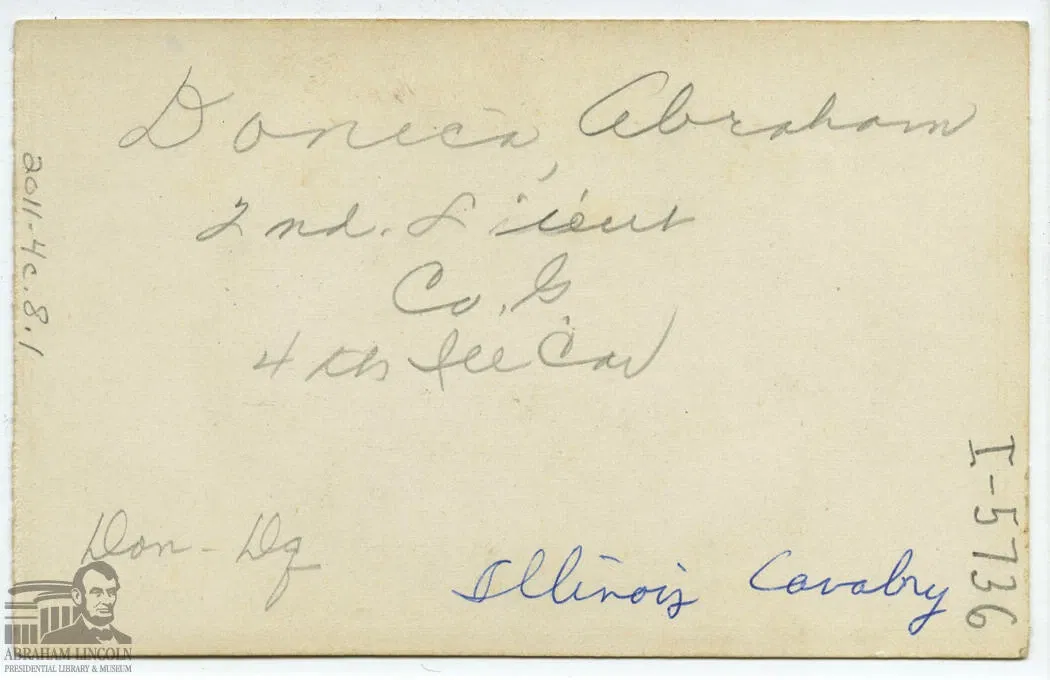 Donica, Abraham
2nd. Lieut
Co. G.
4th Ill Cav
Don - Dq
Illinois Cavalry
2011-4c.8.1
I-5736
ABRAHAM LINCOLN
PRESIDENTIAL LIBRARY & MUSEUM